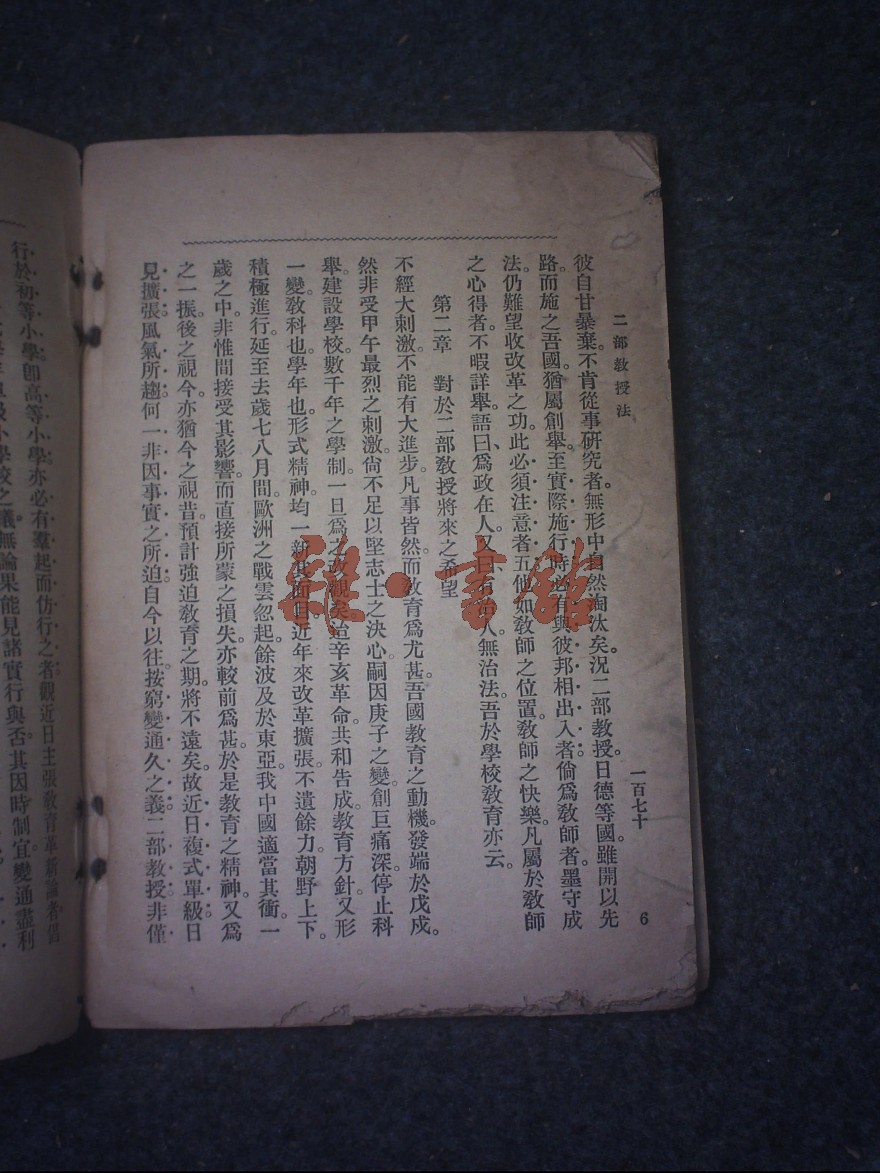 二部教授法
一百七十
6
彼自甘暴棄。不肯從事研究者。無形中自然淘汰矣。況二部教授。日德等國。雖開以先
路。而施之吾國。猶屬創舉。至實際施行時。必有與彼邦相出入者。倘爲教師者。墨守成
法。仍難望收改革之功。此必須注意者五。他如教師之位置。教師之快樂。凡屬於教師
之心得者。不暇詳舉。語曰、爲政在人。又曰有治人。無治法。吾於學校教育亦云。
第二章 對於二部教授將來之希望
不經大刺激。不能有大進步。凡事皆然。而教育爲尤甚。吾國教育之動機。發端於戊戌。
然非受甲午最烈之刺激。尙不足以堅志士之決心。嗣因庚子之變。創巨痛深。停止科
舉。建設學校。數千年之學制。一旦爲之改觀矣。治辛亥革命。共和告成。教育方針。又形
一變。敎科也。學年也。形式精神。均一新其面目。近年來改革擴張。不遺餘力。朝野上下。
積極進行。延至去歲七八月間。歐洲之戰雲忽起。餘波及於東亞。我中國適當其衝。一
歲之中。非惟間接受其影響。而直接所蒙之損失。亦較前爲甚。於是敎育之精神。又爲
之一振。後之視今。亦猶今之視昔。預計強迫敎育之期。將不遠矣。故近日複式單級。日
見擴張。風氣所趨。何一非因事實之所迫。自今以往。按窮變通久之義。二部敎授。非僅
行於初等小學。卽高等小學。亦必有羣起而仿行之者。觀近日主張敎育革新論者。倡
級小學校之議。無論果能見諸實行與否。其因時制宜。變通盡利
雜·書館